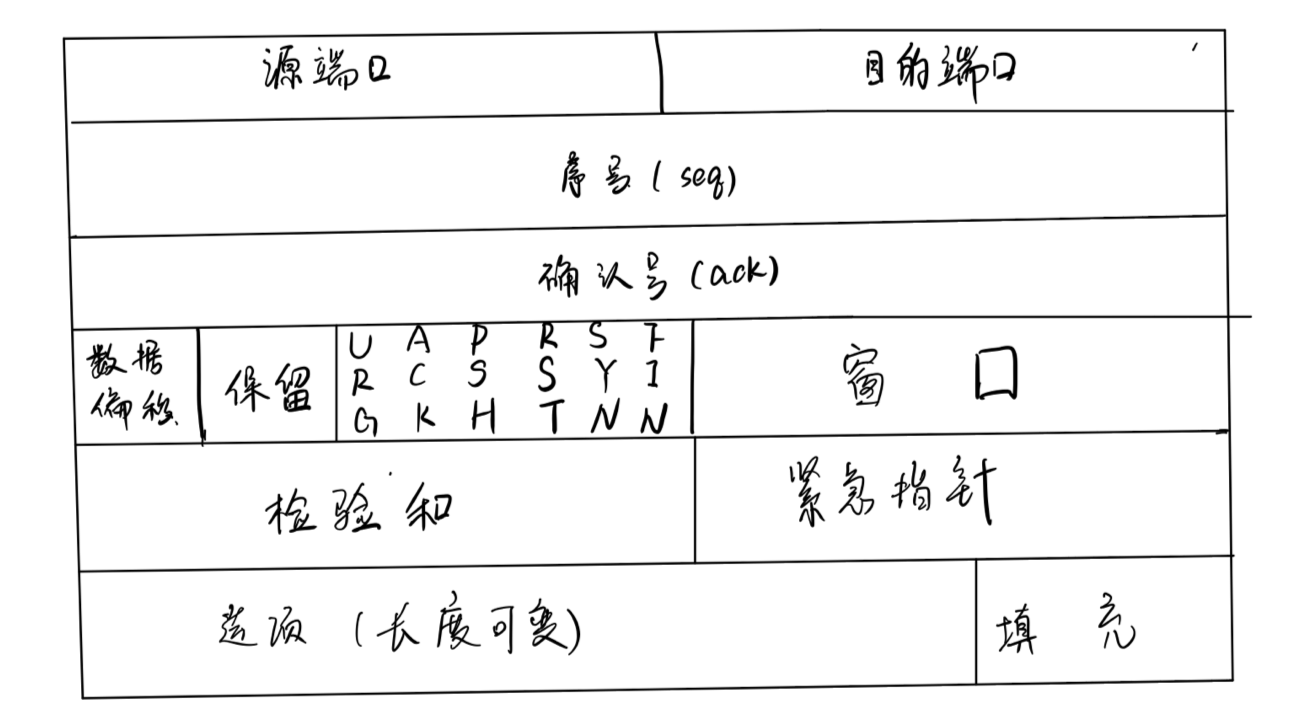 源端口 目的端口
序号(seq)
确认号(ack)
数据 偏移 保留 URG ACK PSH RST SYN FIN 窗口
检验和 紧急指针
选项(长度可变) 填充